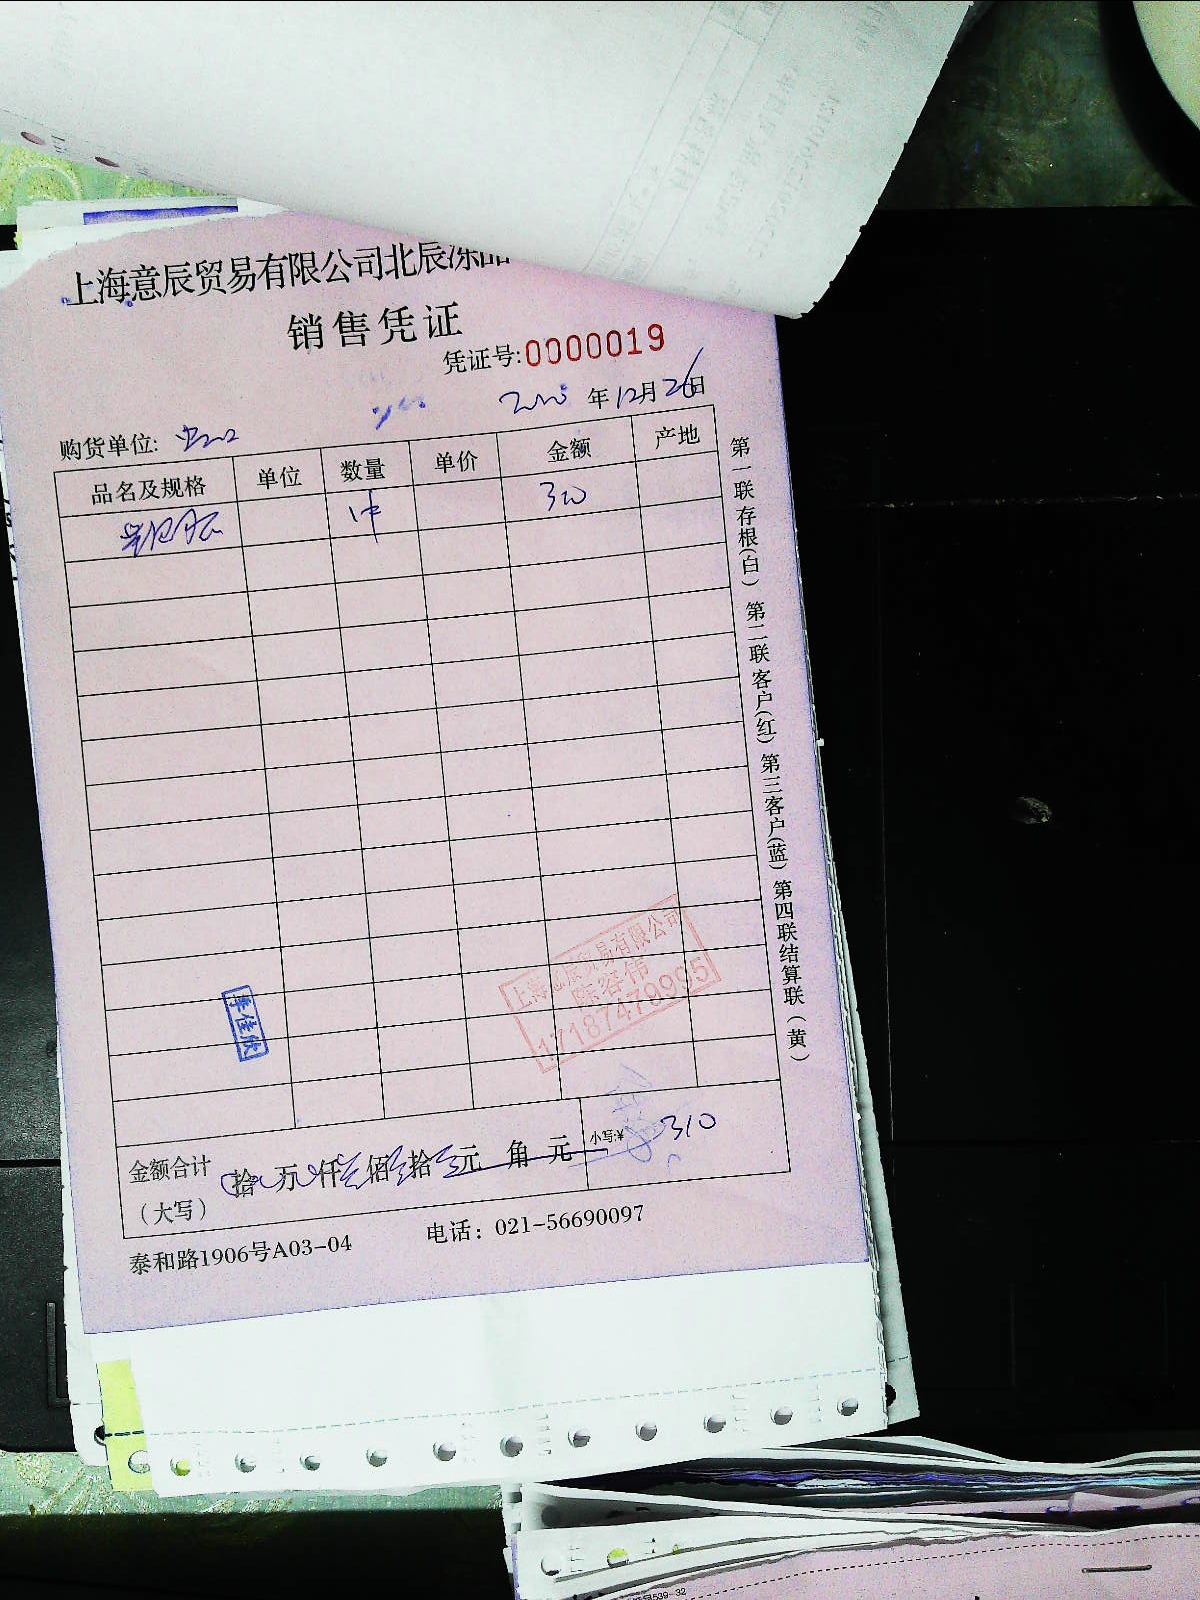 上海意辰贸易有限公司北辰冻品
销售凭证
凭证号:0000019
年12月26日
购货单位:
品名及规格 单位 数量 单价 金额 产地
1件 310
第一联存根(白) 第二联客户(红) 第三客户(蓝) 第四联结算联(黄)
上海意辰贸易有限公司
陈容伟
17187479995
李佳欣
金额合计(大写) 拾 万 仟 佰 拾 元 角 元 小写:¥ 310
泰和路1906号A03-04 电话: 021-56690097